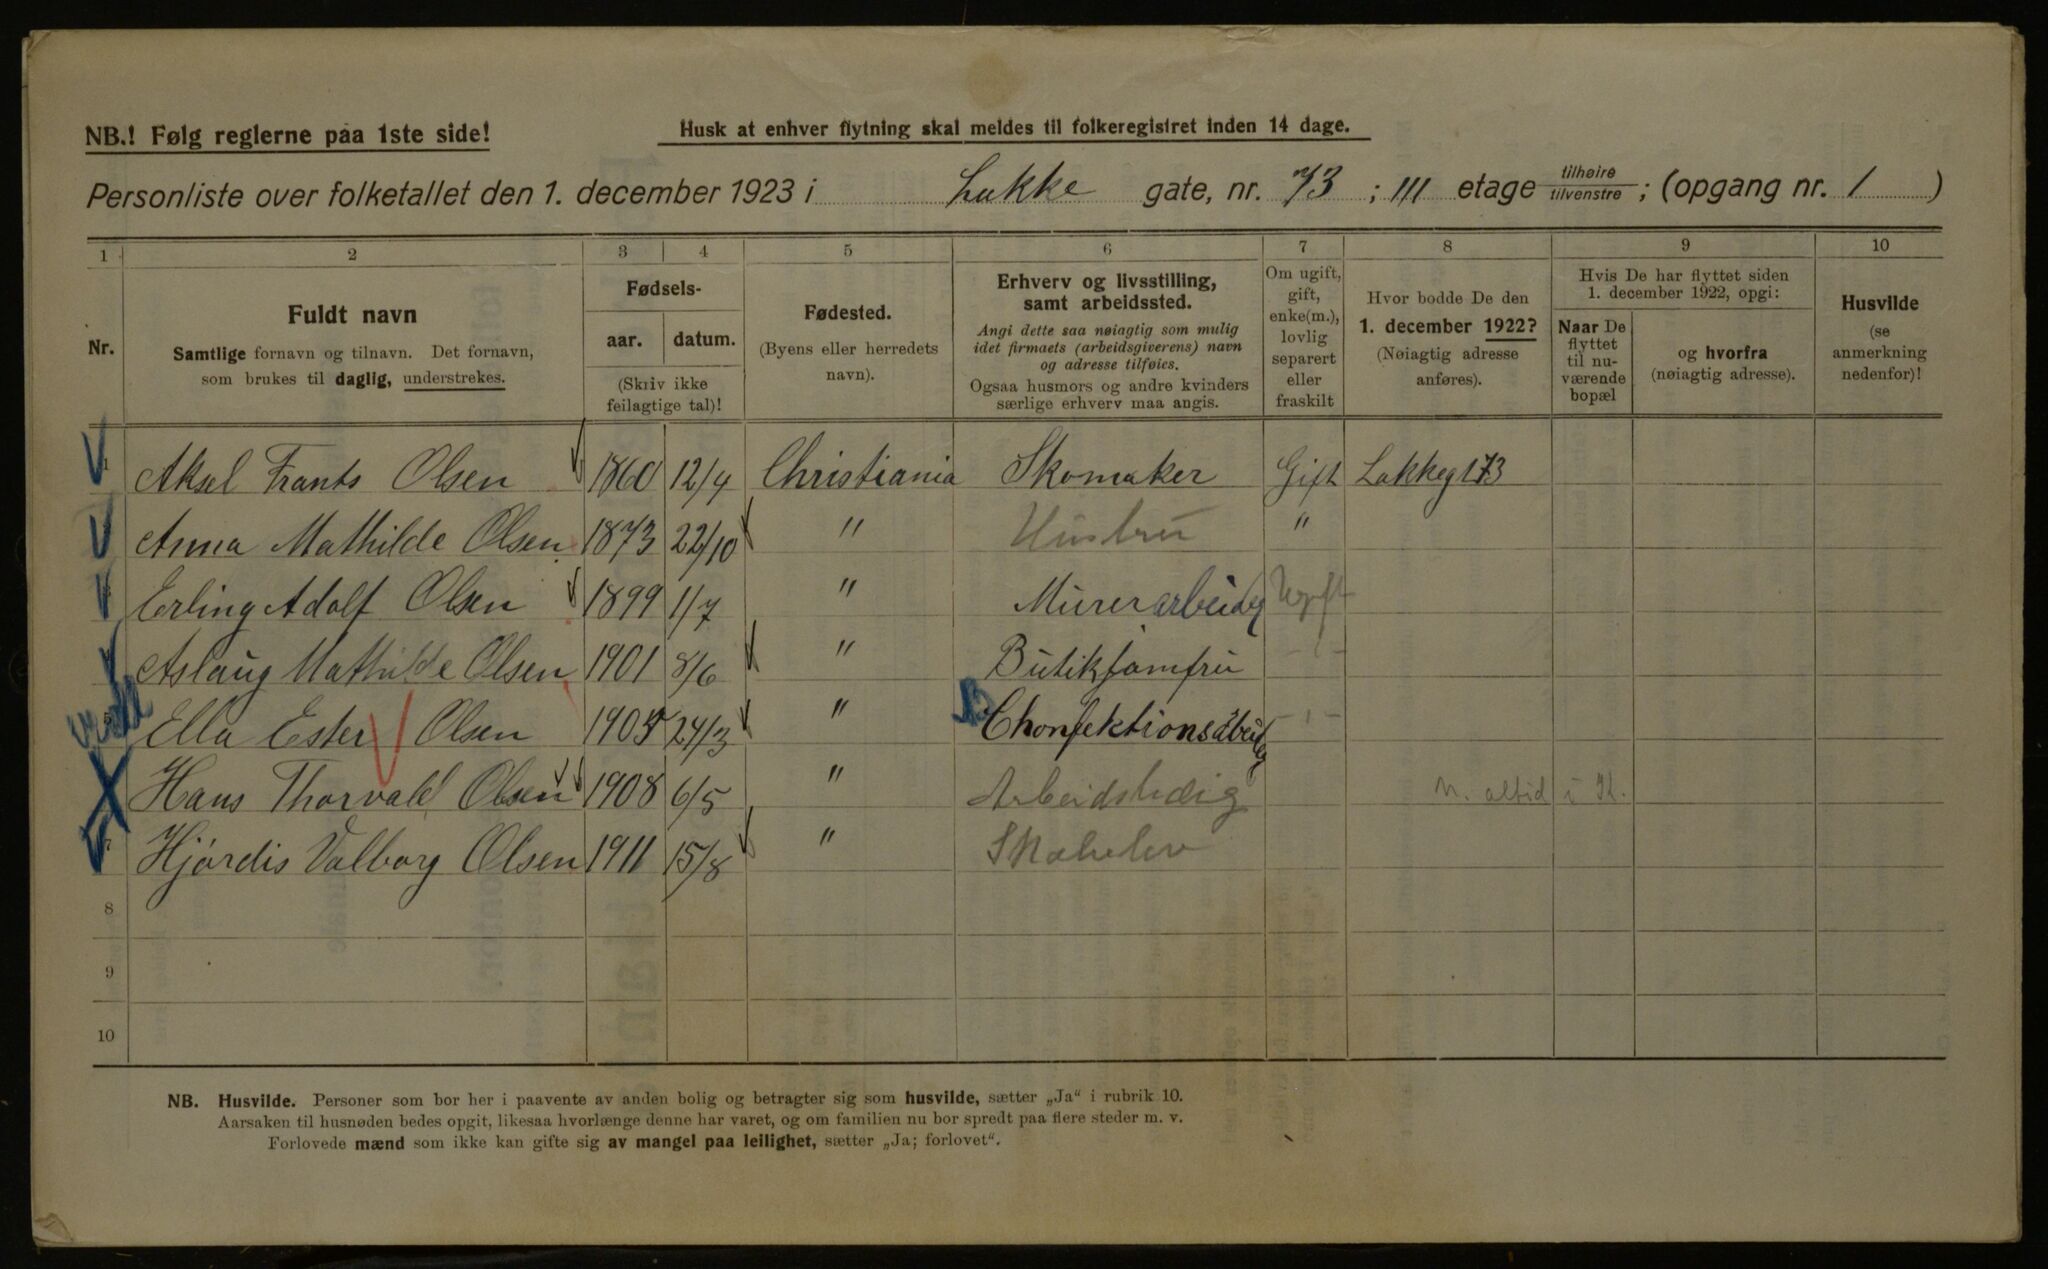 NB.! Følg reglerne paa 1ste side!
Husk at enhver flytning skal meldes til folkeregistret inden 14 dage.
Personliste over folketallet den 1. december 1923 i Lakke gate, nr. 73 ; III etage tilhøire tilvenstre ; (opgang nr. 1 )
1 2 3 4 5 6 7 8 9 10
Nr.
Fuldt navn
Samtlige fornavn og tilnavn. Det fornavn,
som brukes til daglig, understrekes.
Fødsels-
aar. datum.
(Skriv ikke
feilagtige tal)!
Fødested.
(Byens eller herredets
navn).
Erhverv og livsstilling,
samt arbeidssted.
Angi dette saa nøiagtig som mulig
idet firmaets (arbeidsgiverens) navn
og adresse tilføies.
Ogsaa husmors og andre kvinders
særlige erhverv maa angis.
Om ugift,
gift,
enke(m.),
lovlig
separert
eller
fraskilt
Hvor bodde De den
1. december 1922?
(Nøiagtig adresse
anføres).
Hvis De har flyttet siden
1. december 1922, opgi:
Naar De
flyttet
til nu-
værende
bopæl
og hvorfra
(nøiagtig adresse).
Husvilde
(se
anmerkning
nedenfor)!
1 Aksel Frants Olsen 1860 12/4 Christiania Skomaker Gift Lakkegt 73
Anna Mathilde Olsen 1873 22/10 " Hustru "
Erling Adolf Olsen 1899 1/7 " Murerarbeider Ugift
Aslaug Mathilde Olsen 1901 8/6 " Butikjomfru - " -
5 Ella Ester Olsen 24/3 " Chonfektionsarbeider - " -
Hans Thorvald Olsen 1908 6/5 " Arbeidsledig altid i K.
7 Hjørdis Valborg Olsen 1911 15/8 " Skoleelev
8
9
10
NB. Husvilde. Personer som bor her i paavente av anden bolig og betragter sig som husvilde, sætter „Ja“ i rubrik 10.
Aarsaken til husnøden bedes opgit, likesaa hvorlænge denne har varet, og om familien nu bor spredt paa flere steder m. v.
Forlovede mænd som ikke kan gifte sig av mangel paa leilighet, sætter „Ja; forlovet“.